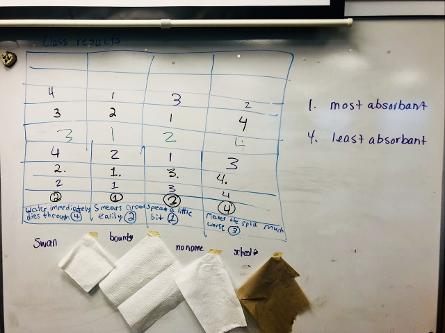 Class results
4 1 3 2
3 2 1 4
3 1 2
4 2 1 3
2. 1. 3. 4.
2 1 3 4
2 1 2 4
Water immediately
goes through 4
Smears
easily 2
Spread a little
bit 1
Makes the spill much
worse 3
Swan bounty noname school
1. most absorbant
4. least absorbant